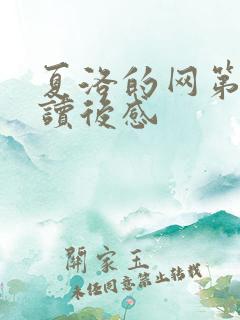 夏洛的网第
讀後感
開家玉
未经同意禁止转载